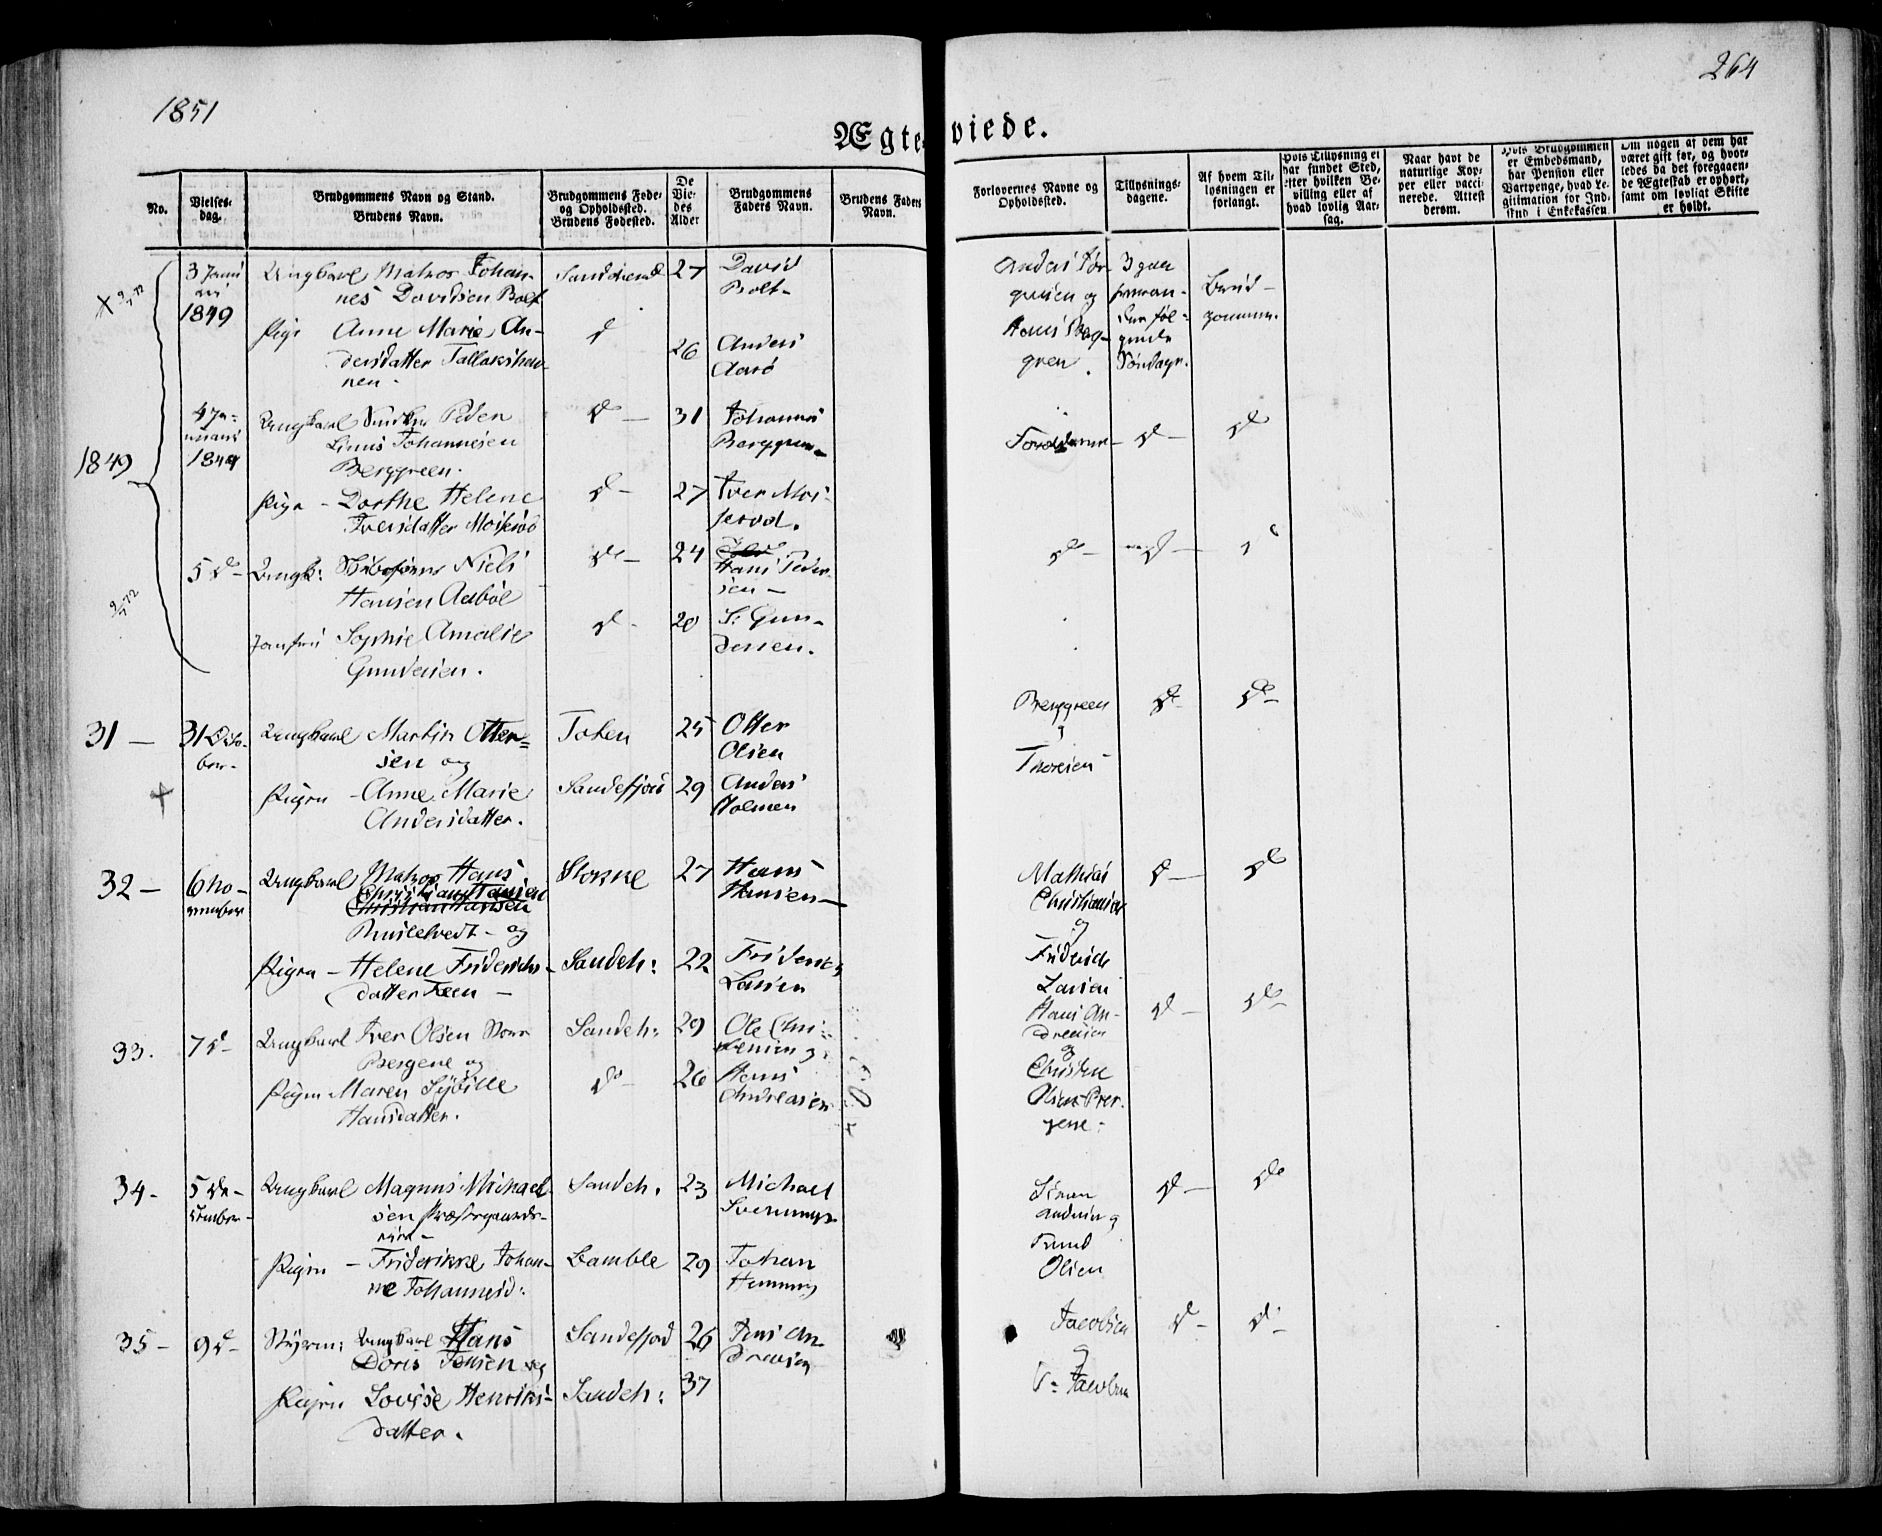 1851
264
Ægteviede.
No.
Vielses-
dag.
Brudgommens Navn og Stand.
Brudens Navn.
Brudgommens Føde-
og Opholdssted.
Brudens Fødested.
De
Vie-
des
Alder
Brudgommens
Faders Navn.
Brudens Faders
Navn.
Forlovernes Navne og
Opholdssted.
Tillysnings-
dagene.
Af hvem Til-
lysningen er
forlangt.
Hvis Tillysning ei
har fundet Sted,
efter hvilken Be-
villing eller af
hvad lovlig Aar-
sag.
Naar havt de
naturlige Kop-
per eller vacci-
nerede. Attest
derom.
Hvis Brudgommen
er Embedsmand,
har Pension eller
Vartpenge, hvad Le-
gitimation for Ind-
skud i Enkekassen.
Om nogen af dem har
været gift før, og hvor-
ledes da det foregaaen-
de Ægteskab er ophørt,
samt om lovligt Skifte
er holdt.
1849
3 Janu
ari
1849
Ungkarl Matros Johan-
nes Davidsen Bolt
27
David
Bolt
Pige Anne Marie An-
dersdatter
26
Anders
Aarø
Anders Jør-
gensen og
Hans Berg-
green
3 paa
hveran-
den føl-
gende
Søndage.
Brud-
gommen.
4 Ja-
nuari
1849
Ungkarl Peder
Linus Johannesen
Berggreen.
d
31
Johannes
Berggreen
d
d
Pige - Dorthe Helene
Iversdatter
d
27
Iver
5 d
Ungk: Niels
Hansen
d
24
Hans Peder-
sen
d
d
Jomfru Sophie Amalie
Gundersen.
d
20
S. Gun-
dersen.
31
31 Octo-
ber
Ungkarl Martin Otter-
sen og
Toten
25
Otter
Olsen
Berggreen
og
Thoresen
d
d
Pigen - Anne Marie
Andersdatter.
Sandefjord
29
Anders
Holmen
32
6 No-
vember
Ungkarl Matros Hans
Christian Hansen
Christian Hansen
og
Stokke
27
Hans
Hansen
Mathias
Christiansen
og
Friderich
Larsen
d
d
Pigen - Helene Friderichs-
datter Feen
Sandeh:
22
Friderich
Larsen
33.
7 d
Ungkarl Iver Olsen
Bergene og
Sandeh:
29
Ole Chri-
stensen
Hans An-
dreasen
og
Christen
Olsen Ber-
gene
d
d
Pigen Maren Sybille
Hansdatter.
d
26
Hans
Andreasen
34
5 De-
cember
Ungkarl Magnus Michael-
sen
Sandeh.
23
Michael
Knud
Olsen
d
d
Pigen - Friderikke Johan-
ne Johannesd:
Bamble
29
Johan
Henning
35
9 d
Styrm: Ungkarl Hans
Doris Jensen og
Sandefjord
26
Jens An-
dreasen
Jacobsen
og
Jacobsen
d
d
Pigen Lovise Henriks-
datter.
Sandeh:
37